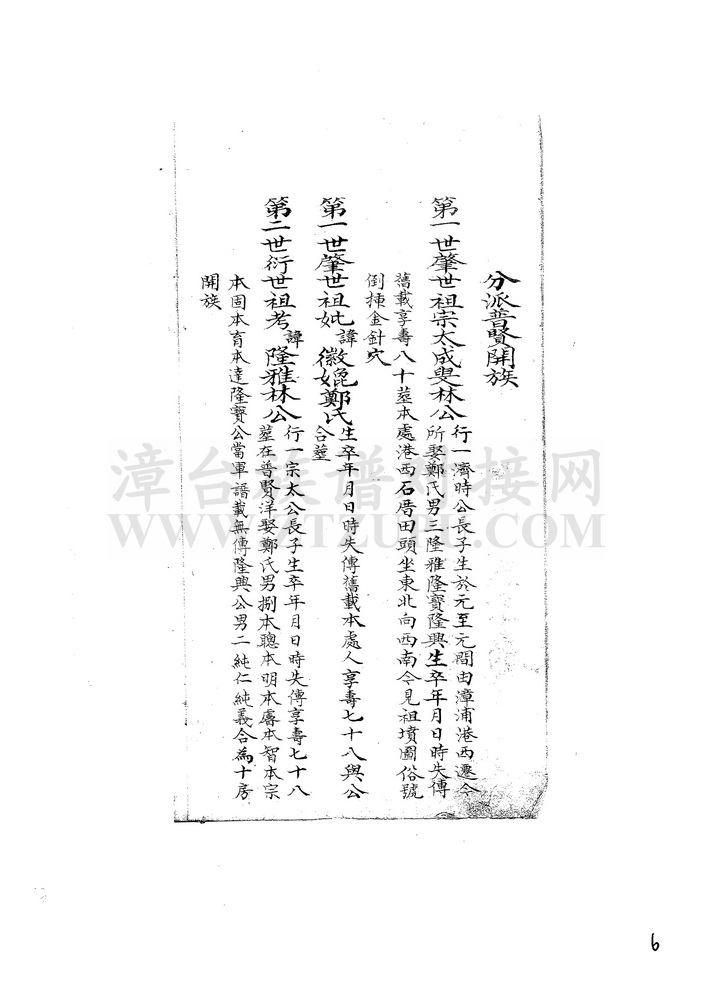 分派普賢開族
第一世肇世祖宗太成斐林公行一濟時公長子生於元至元間由漳浦港西遷今
所娶鄭氏男三隆雅隆寶隆興生卒年月日時失傳
舊載享壽八十墓本處港西石厝田頭坐東北向西南今見祖墳圖俗號
倒揀金針穴
第一世肇世祖妣諱徽娩鄭氏生卒年月日時失傳舊載本處人享壽七十八與公
合塟
第二世衍世祖考諱隆雅林公行一宗太公長子生卒年月日時失傳享壽七十八
墓在普賢洋娶鄭氏男捌本聰本明本睿本智本宗
本固本育本達隆寶公當軍譜載無傳隆興公男二純仁純義合為十房
開族
漳台族谱对接网
WWW.ZTZUPU.COM
6